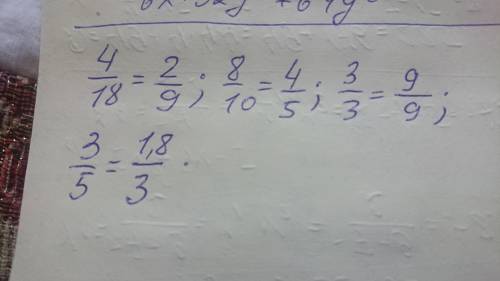 4/18 = 2/9; 8/10 = 4/5; 3/3 = 9/9;
3/5 = 1,8/3.